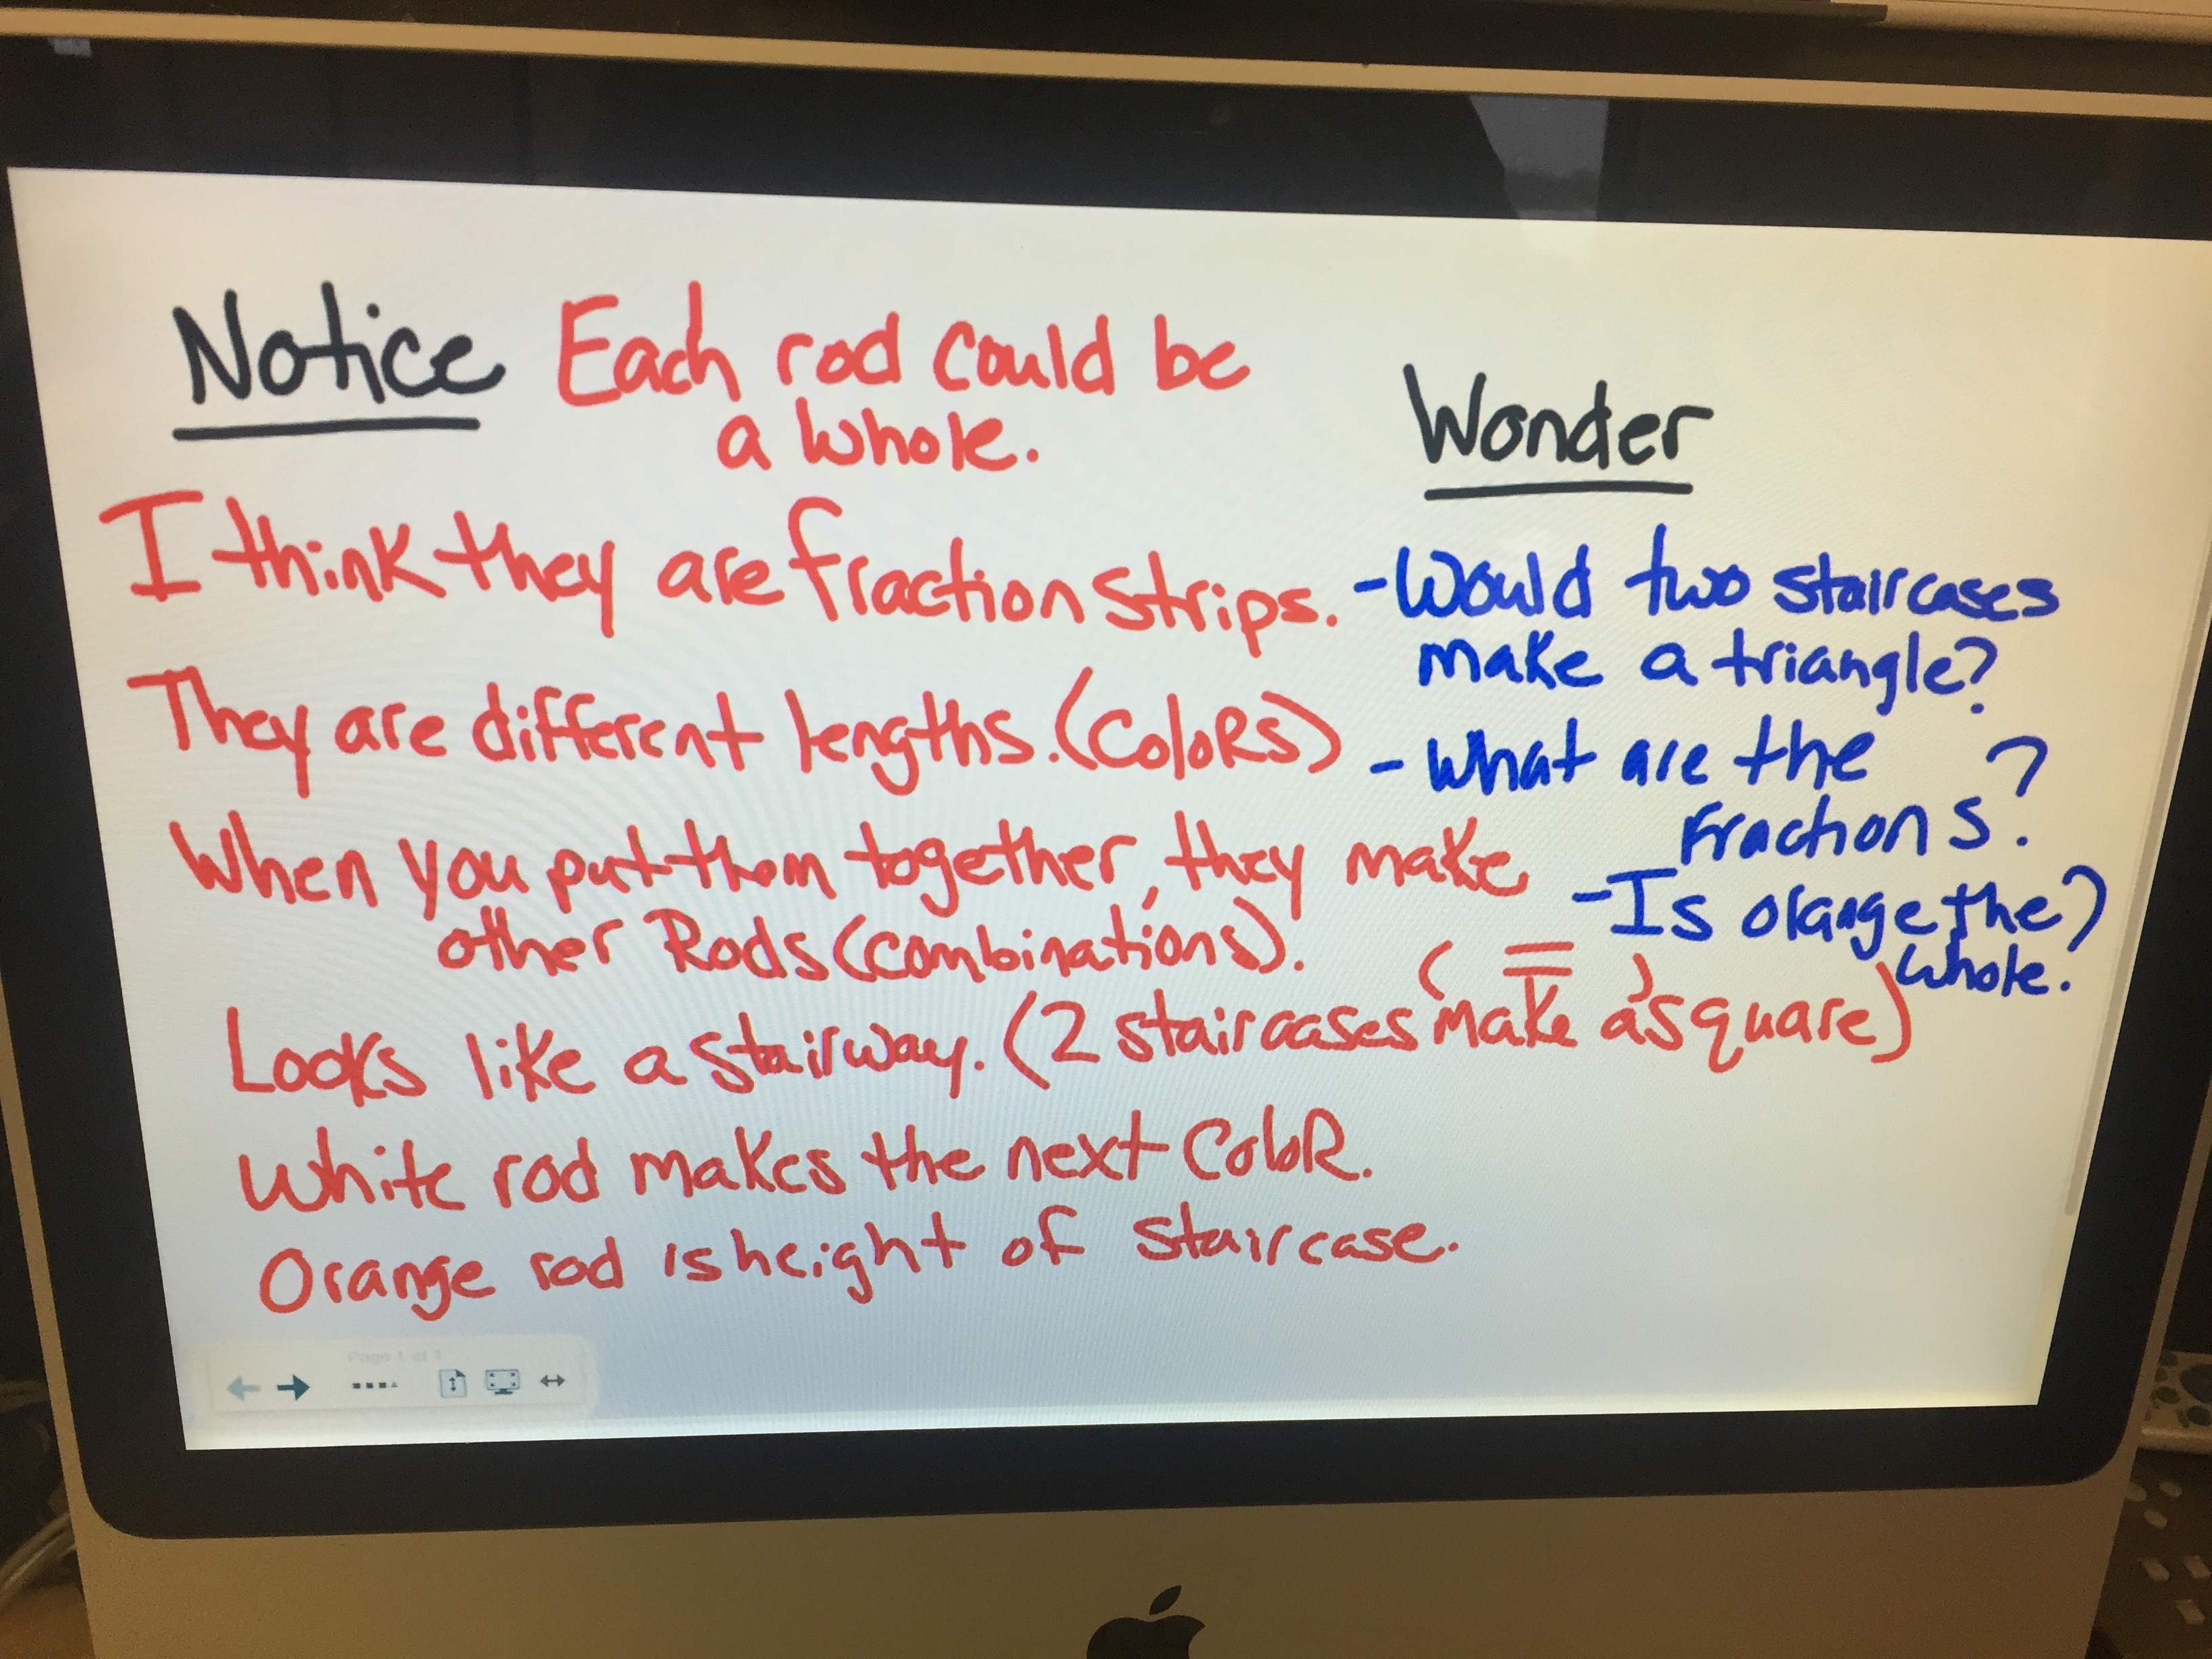 Notice Each rod could be
a whole.
I think they are fraction strips.
They are different lengths. (ColoRs)
When you put them together, they make
other Rods (combinations).
Looks like a stairway. (2 staircases make a square)
( = )
White rod makes the next ColoR.
Orange rod is height of staircase.
Wonder
- Would two staircases
make a triangle?
- What are the
fractions?
- Is orange the
whole?
Page 1 of 1